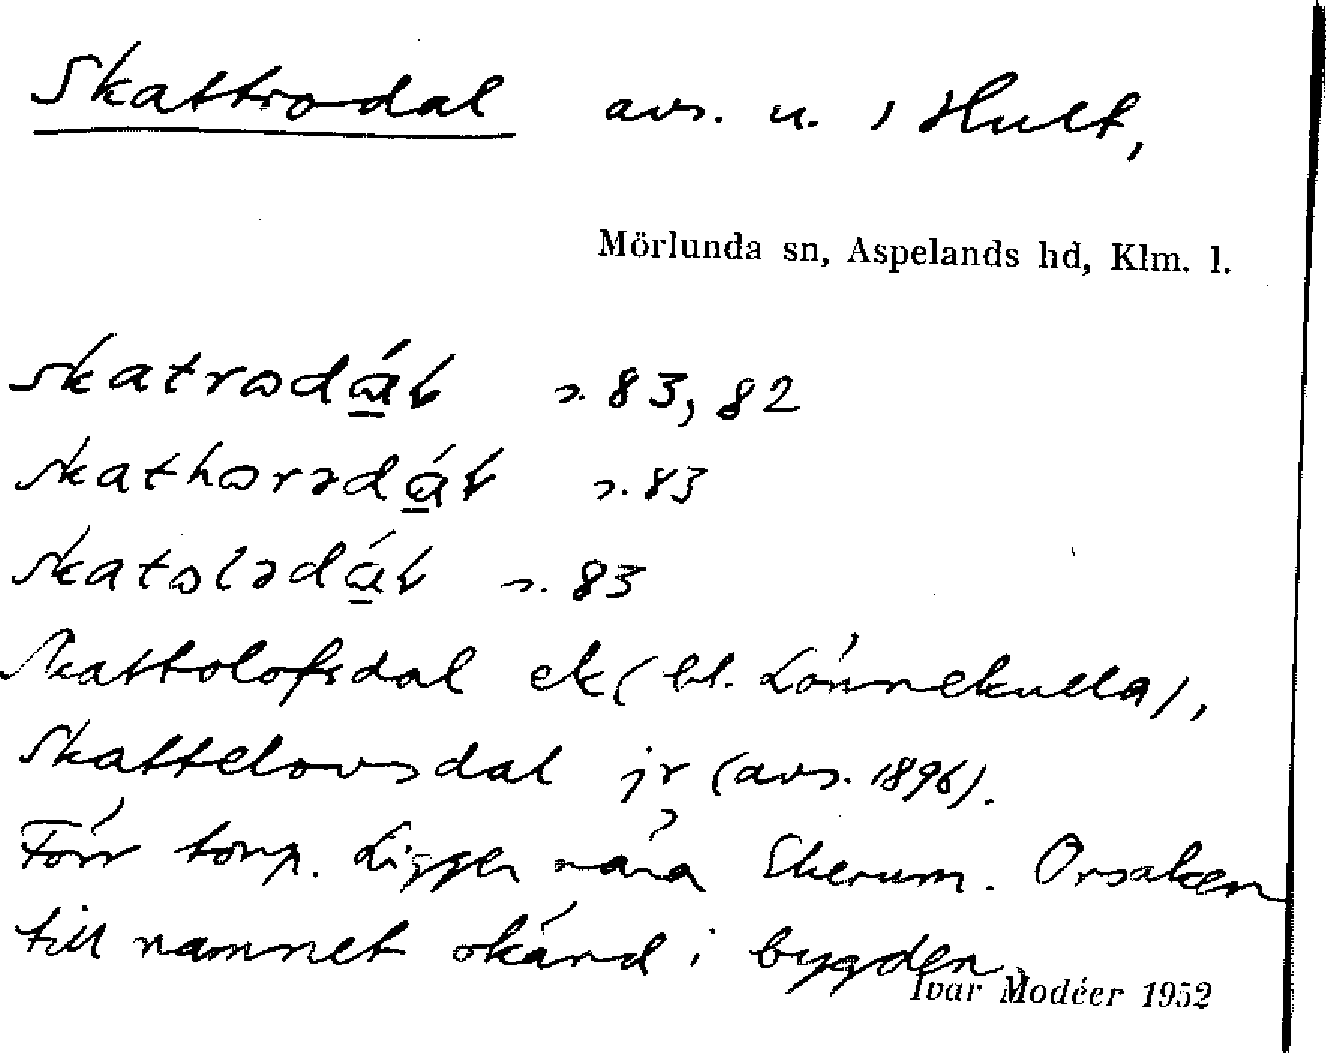 Skattrodal avs. u. 1 Hult,
Mörlunda sn, Aspelands hd, Klm. l.
s. 83, 82
s. 83
s. 83
Skattolofsdal ek (bl. Lönnekulla),
Skattelovsdal jr (avs. 1896).
Förr torp. Ligger nära Ekerum. Orsaken
till namnet okänd i bygden.
Ivar Modéer 1952